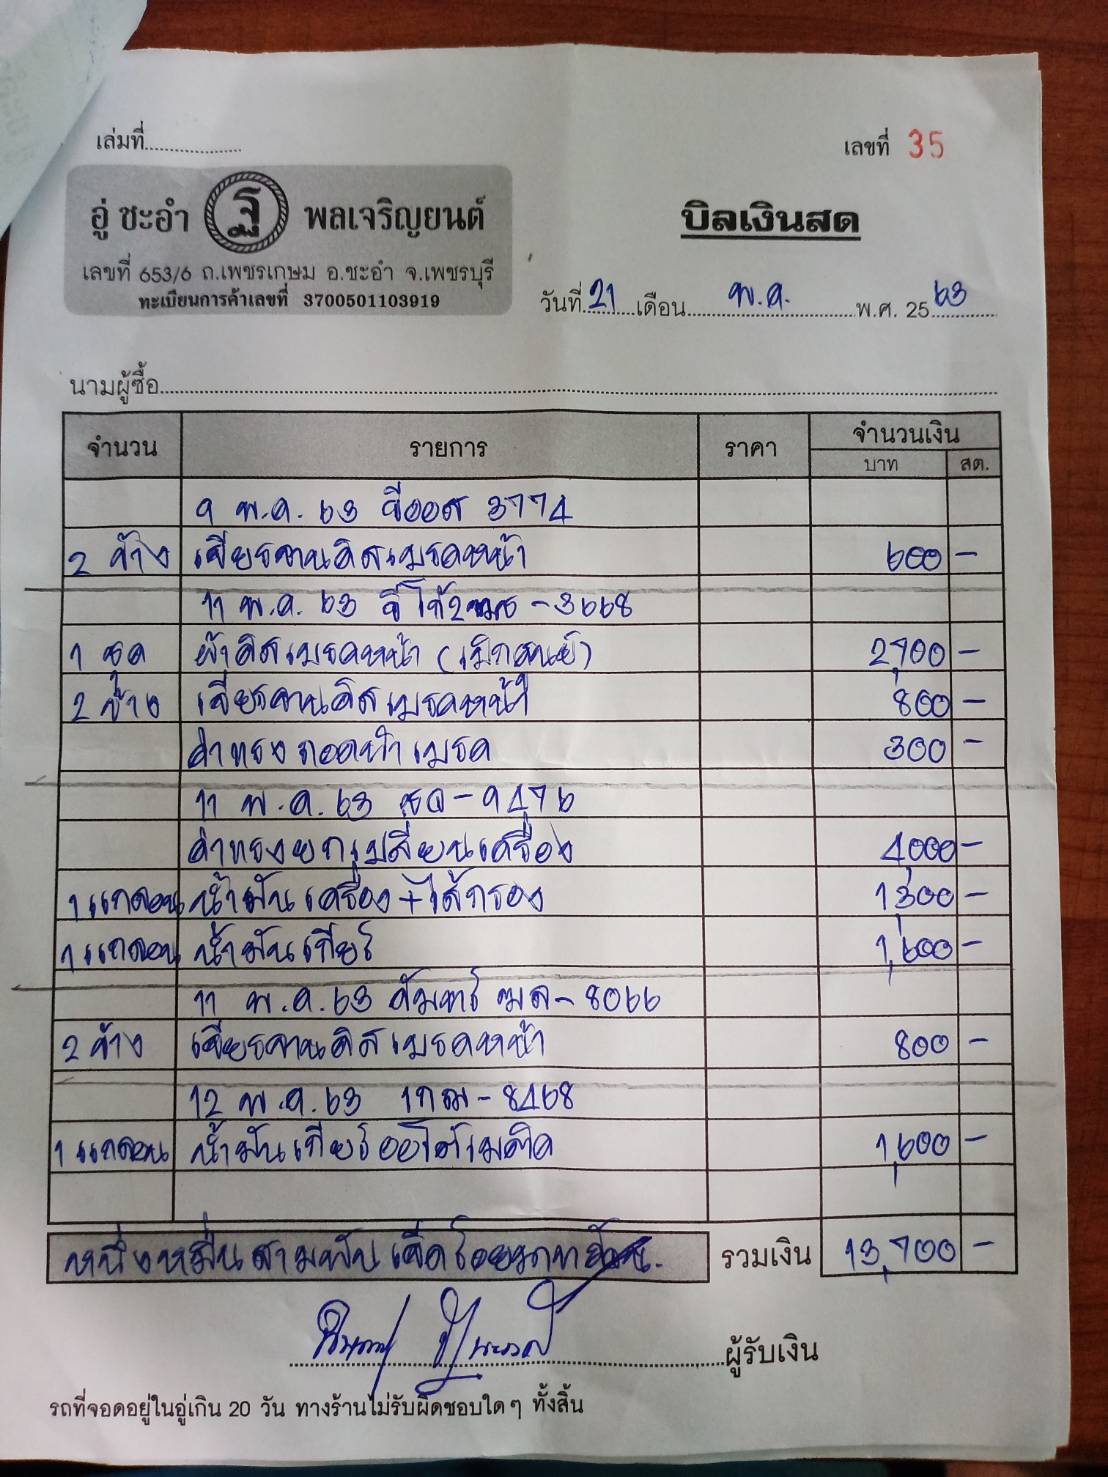 เล่มที่
เลขที่ 35
อู่ ชะอำ ฐิ พลเจริญยนต์
บิลเงินสด
เลขที่ 653/6 ถ.เพชรเกษม อ.ชะอำ จ.เพชรบุรี
ทะเบียนการค้าเลขที่ 3700501103919
วันที่ 21 เดือน พ.ค. พ.ศ. 25 63
นามผู้ซื้อ
จำนวน รายการ ราคา จำนวนเงิน
บาท สต.
9 พ.ค. 63 วีออส 3774
2 ข้าง เจียรจานดิสเบรคหน้า 600 -
11 พ.ค. 63 วีโก้ - 3668
1 ชุด ผ้าดิสเบรคหน้า (เบิกศูนย์) 2,700 -
2 ข้าง เจียรจานดิสเบรคหน้า 800 -
ค่าแรงถอดผ้าเบรค 300 -
11 พ.ค. 63 - 9476
ค่าแรงยกเปลี่ยนเครื่อง 4,000 -
1 แกลลอน น้ำมันเครื่อง + ไส้กรอง 1,300 -
1 แกลลอน น้ำมันเกียร์ 1,600 -
11 พ.ค. 63 - 8066
2 ข้าง เจียรจานดิสเบรคหน้า 800 -
12 พ.ค. 63 1กฒ - 8468
1 แกลลอน น้ำมันเกียร์ออโต้เมติค 1,600 -
หนึ่งหมื่นสามพันเจ็ดร้อยบาทถ้วน. รวมเงิน 13,700 -
ผู้รับเงิน
รถที่จอดอยู่ในอู่เกิน 20 วัน ทางร้านไม่รับผิดชอบใดๆ ทั้งสิ้น